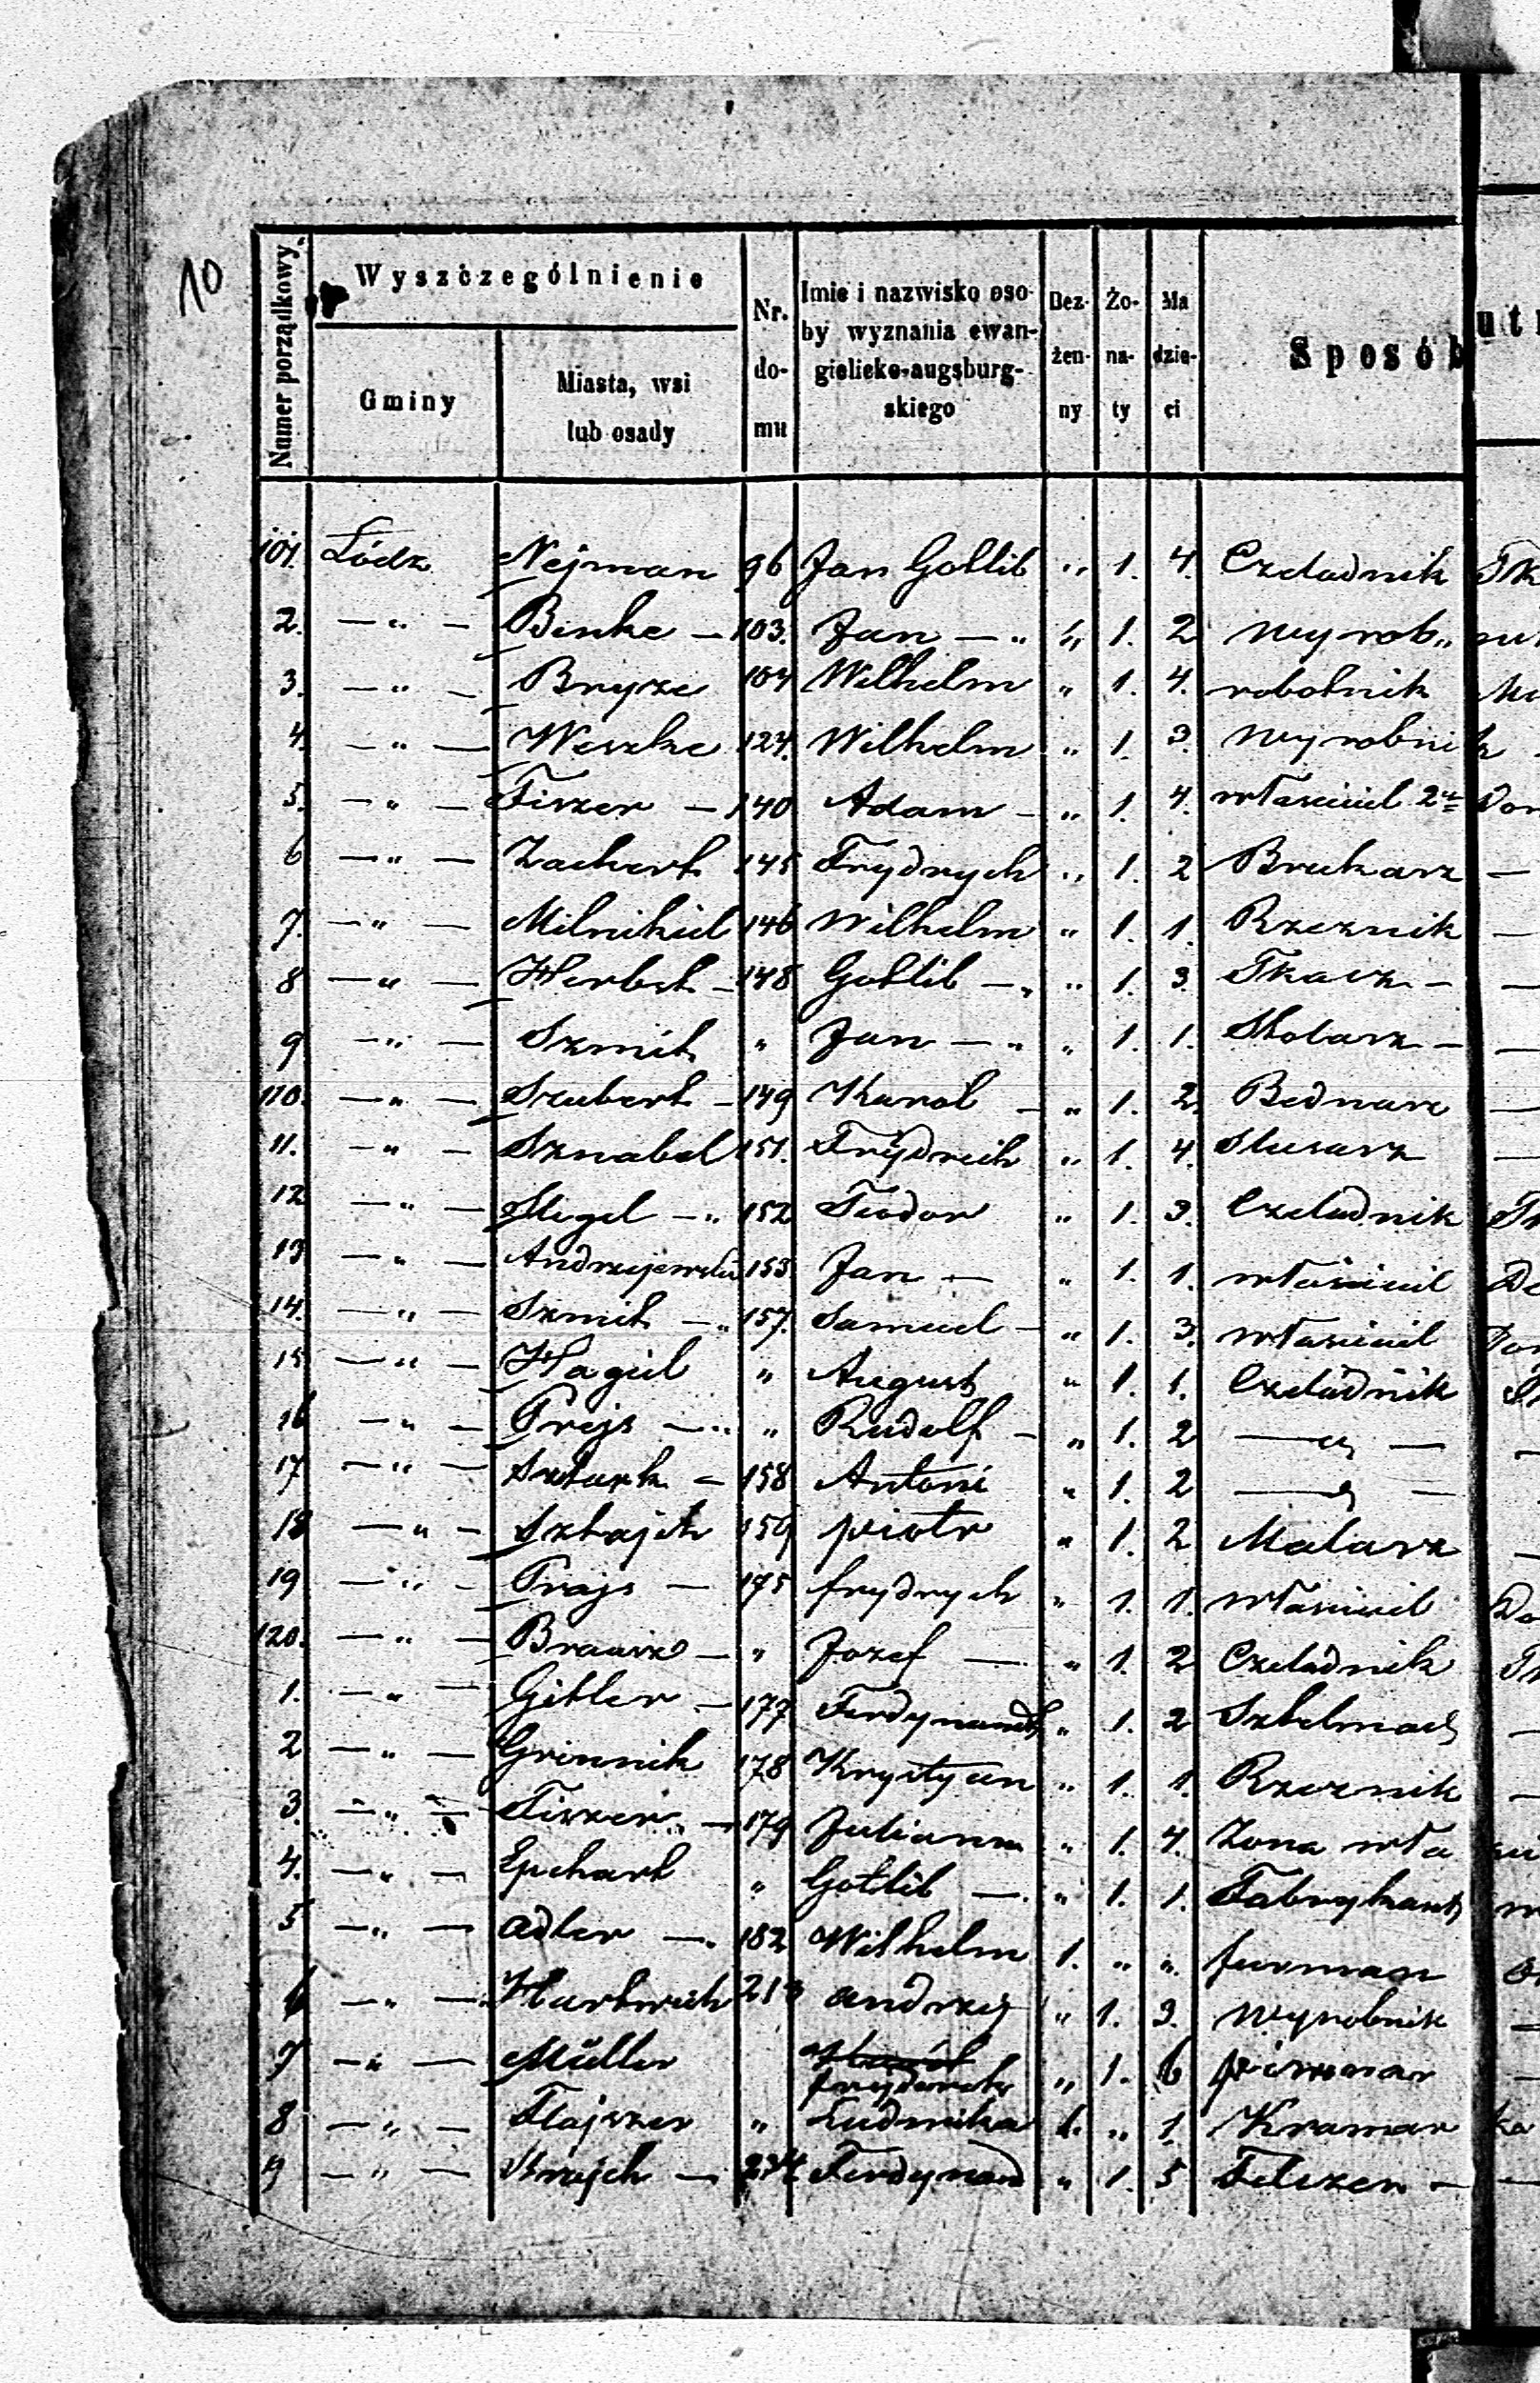 10
Numer porządkowy.
Wyszczególnienie
Gminy
Miasta, wsi
lub osady
Nr.
do-
mu
Imie i nazwisko oso-
by wyznania ewan-
gielicko-augsburg-
skiego
Bez-
żen-
ny
Żo-
na-
ty
Ma
dzie-
ci
Sposób
utr
101. Łódz Nejman 96 Jan Gotlib „ 1. 4. Czeladnik Tk
2. — „ — Binke — 103. Jan — „ „ 1. 2 wyrob„
3. — „ — Bryze 104 Wilhelm „ 1. 4. robotnik
4. — „ — Weszke 124. Wilhelm „ 1. 3. wyrobnik
5. — „ — Fiszer — 140 Adam — „ 1. 4. własciciel 2ch Dom
6 — „ — Zachert 145 Frydrych „ 1. 2 Brukarz —
7. — „ — Milnikiel 146 Wilhelm „ 1. 1. Rzeznik —
8 — „ — Herbst — 148 Gotlib — „ „ 1. 3. Tkacz — —
9 — „ — Szmit „ Jan — „ „ 1. 1. Stolarz — —
110. — „ — Szubert — 149 Karol — „ 1. 2. Bednarz —
11. — „ — Sznabel 151. Frydrich „ 1. 4. Slusarz —
12 — „ — Slegel — „ 152 Teodor „ 1. 3. Czeladnik Tk
13 — „ — Andrzejewski 153 Jan — „ 1. 1. właściciel Do
14. — „ — Szmit — „ 157. Samuel — „ 1. 3. własciciel Dom
15 — „ — Hagiel „ August „ 1. 1. Czeladnik Tk
16 — „ — Prejs — „ „ Rudolf — „ 1. 2 — „ — -
17 — „ — Sztark — 158 Antoni „ 1. 2 — „ —
18 — „ — Sztajch 159 piotr „ 1. 2 Malarz —
19 — „ — Prajs — 175 frydrych „ 1. 1. własciciel Do
120. — „ — — „ Jozef — „ 1. 2 Czeladnik Tk
1. — „ — Gitler — 177 Ferdynand „ 1. 2 Sztelmach —
2 — „ — Grinnik 178 Krystyan „ 1. 1. Rzeznik —
3. — „ — Fiszer „ — 179 Julianna „ 1. 4. Zona wła
4. — „ — Epchart „ Gotlib — „ 1. 1. Fabrykant
5 — „ — adler — 182 Wilhelm 1. „ „ furman
6 — „ — Hartwich 213 andrzej „ 1. 3. wyrobnik —
7 — „ — Müller frydrich „ 1. 6 piwowar —
8 — „ — Flajszer „ Ludwika 1. „ 1. Kramar ka
9 — „ — Brajch — Ferdynand „ 1. 5 Felczer — —